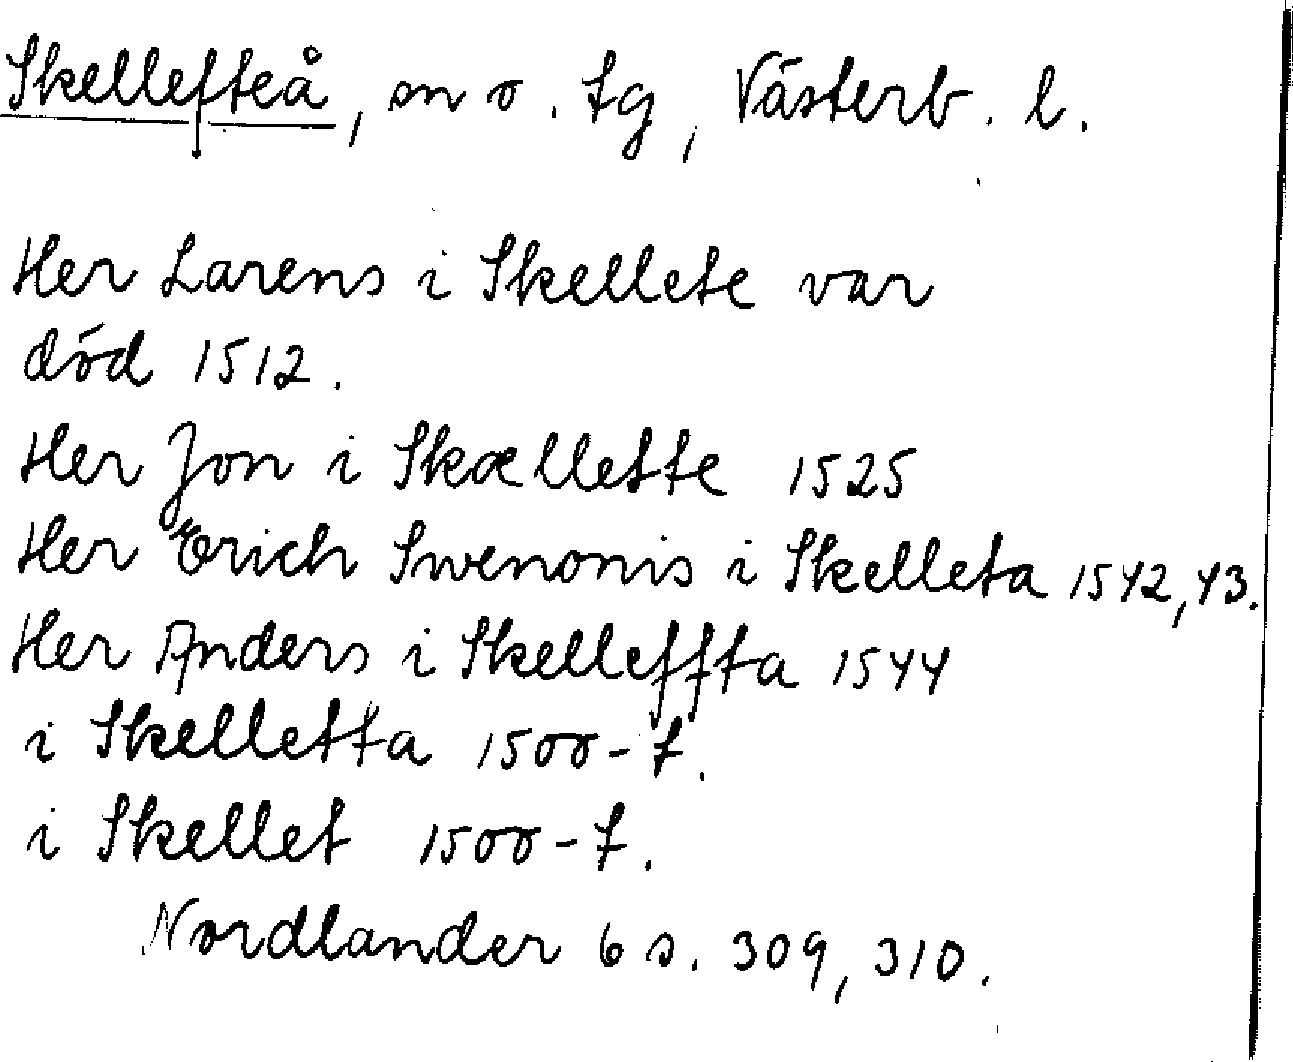 Skellefteå, sn o. tg, Västerb. l.
Her Larens i Skellete var
död 1512.
Her Jon i Skællette 1525
Her Erich Swenonis i Skelleta 1542, 43.
Her Anders i Skelleffta 1544
i Skelletta 1500-t.
i Skellet 1500-t.
Nordlander 6 s. 309, 310.